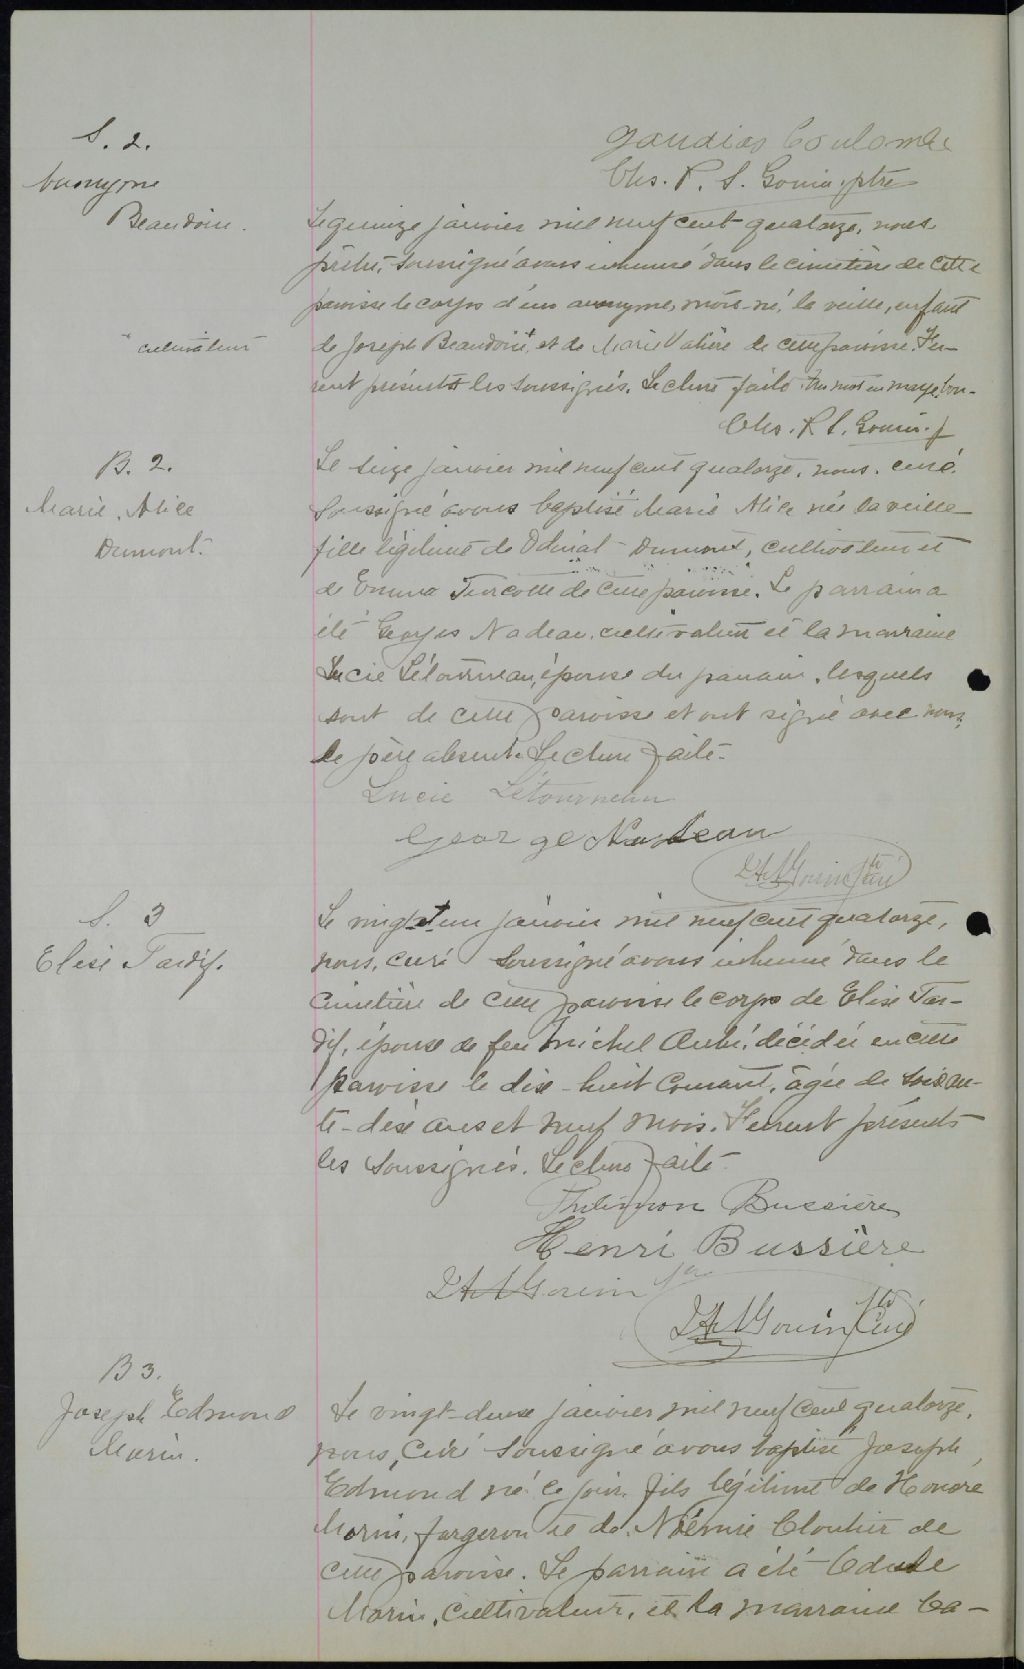 S. 2.
Anonyme
Beaudoin.
cultivateur
Gaudias Coulombe
Chs. P. S. Gouin, ptre
Le quinze janvier mil neuf cent quatorze, nous
prêtre, soussigné avons inhumé dans le cimetière de cette
paroisse le corps d'un anonyme, mort-né, la veille, enfant
de Joseph Beaudoin + et de Marie Valière de cette paroisse. Fu-
rent présents les soussignés. Lecture faite. Un mot en marge bon.
Chs. P. S. Gouin. p
B. 2.
Marie. Alice
Dumont.
Le seize janvier mil neuf cent quatorze, nous, curé
soussigné avons baptisé Marie Alice née la veille
fille légitime de Odinat Dumont, cultivateur et
de Emma Turcotte de cette paroisse. Le parrain a
été Georges Nadeau, cultivateur et la marraine
Lucie Létourneau, épouse du parrain, lesquels
sont de cette paroisse et ont signé avec nous,
le père absent. Lecture faite.
Lucie Létourneau
George Nadeau
Gouin ptre curé
S. 3
Elise Tardif.
Le vingt et un janvier mil neuf cent quatorze,
nous, curé soussigné avons inhumé dans le
cimetière de cette paroisse le corps de Elise Tar-
dif, épouse de feu Michel Aubé, décédée en cette
paroisse le dix-huit courant, âgée de soixan-
te-dix ans et neuf mois. Furent présents
les soussignés. Lecture faite.
Philémon Bussière
Henri Bussière
Gouin ptre
Gouin ptre Curé
B 3.
Joseph Edmond
Morin.
Le vingt-deux janvier mil neuf cent quatorze,
nous, Curé soussigné avons baptisé Joseph
Edmond né ce jour fils légitime de Honoré
Morin, forgeron et de Noémie Cloutier de
cette paroisse. Le parrain a été
Morin, cultivateur, et la marraine Ca-